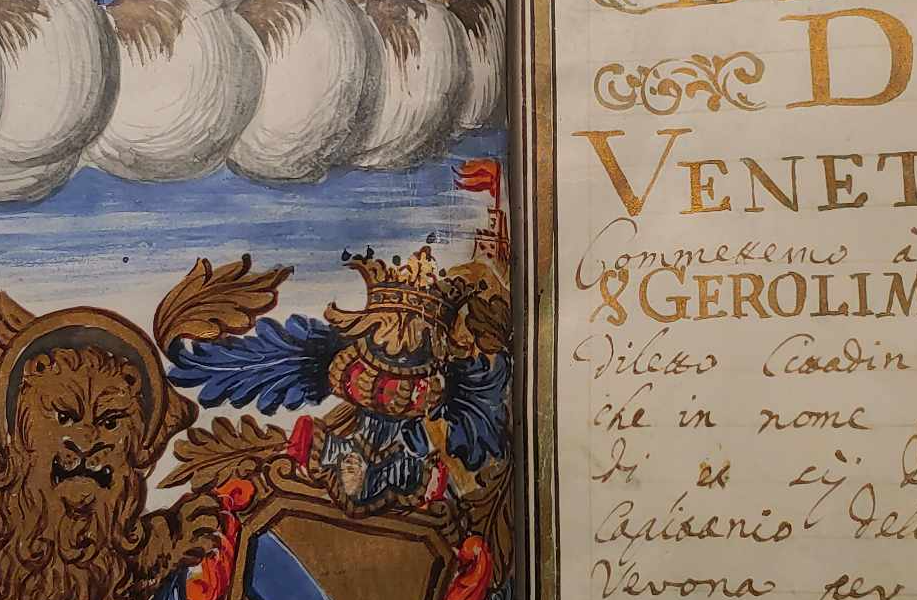 D
VENET
Commettemo à
GEROLIM
Diletto Cittadin
che in nome
di et sij
Capitanio del
Verona per